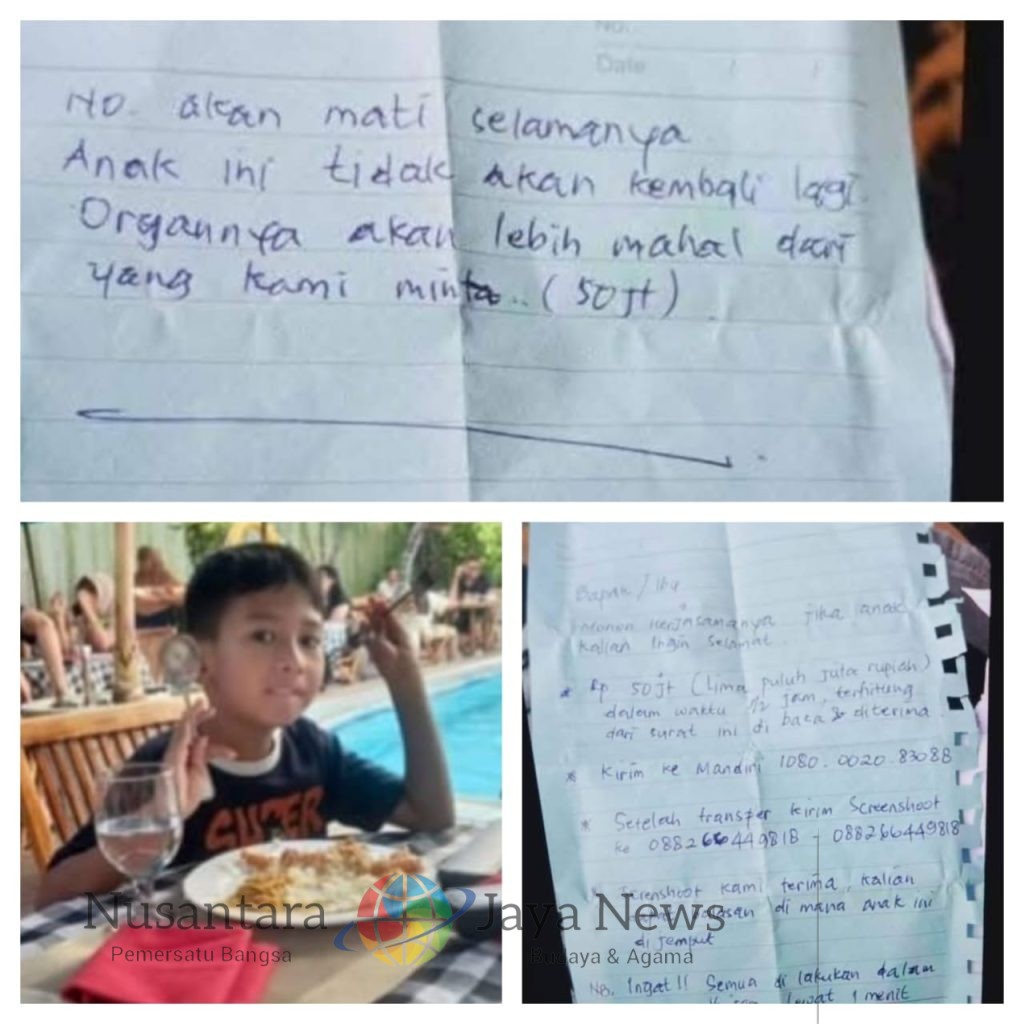 No.
Date / /
No. akan mati selamanya
Anak ini tidak akan kembali lagi.
Organnya akan lebih mahal dari
yang kami minta.. (50jt)
SUPER
Bapak / Ibu
Mohon kerjasamanya jika anak
kalian ingin selamat.
* Rp 50jt (Lima puluh juta rupiah)
dalam waktu 12 jam, terhitung
dari surat ini di baca & diterima
* Kirim ke Mandiri 1080.0020.83088
* Setelah transfer kirim Screenshoot
ke 088266449818 - 088266449818
Screnshoot kami terima, kalian
balasan di mana anak ini
di jemput
NB. Ingat!! Semua di lakukan dalam
jam lewat 1 menit
Nusantara Jaya News
Pemersatu Bangsa Budaya & Agama